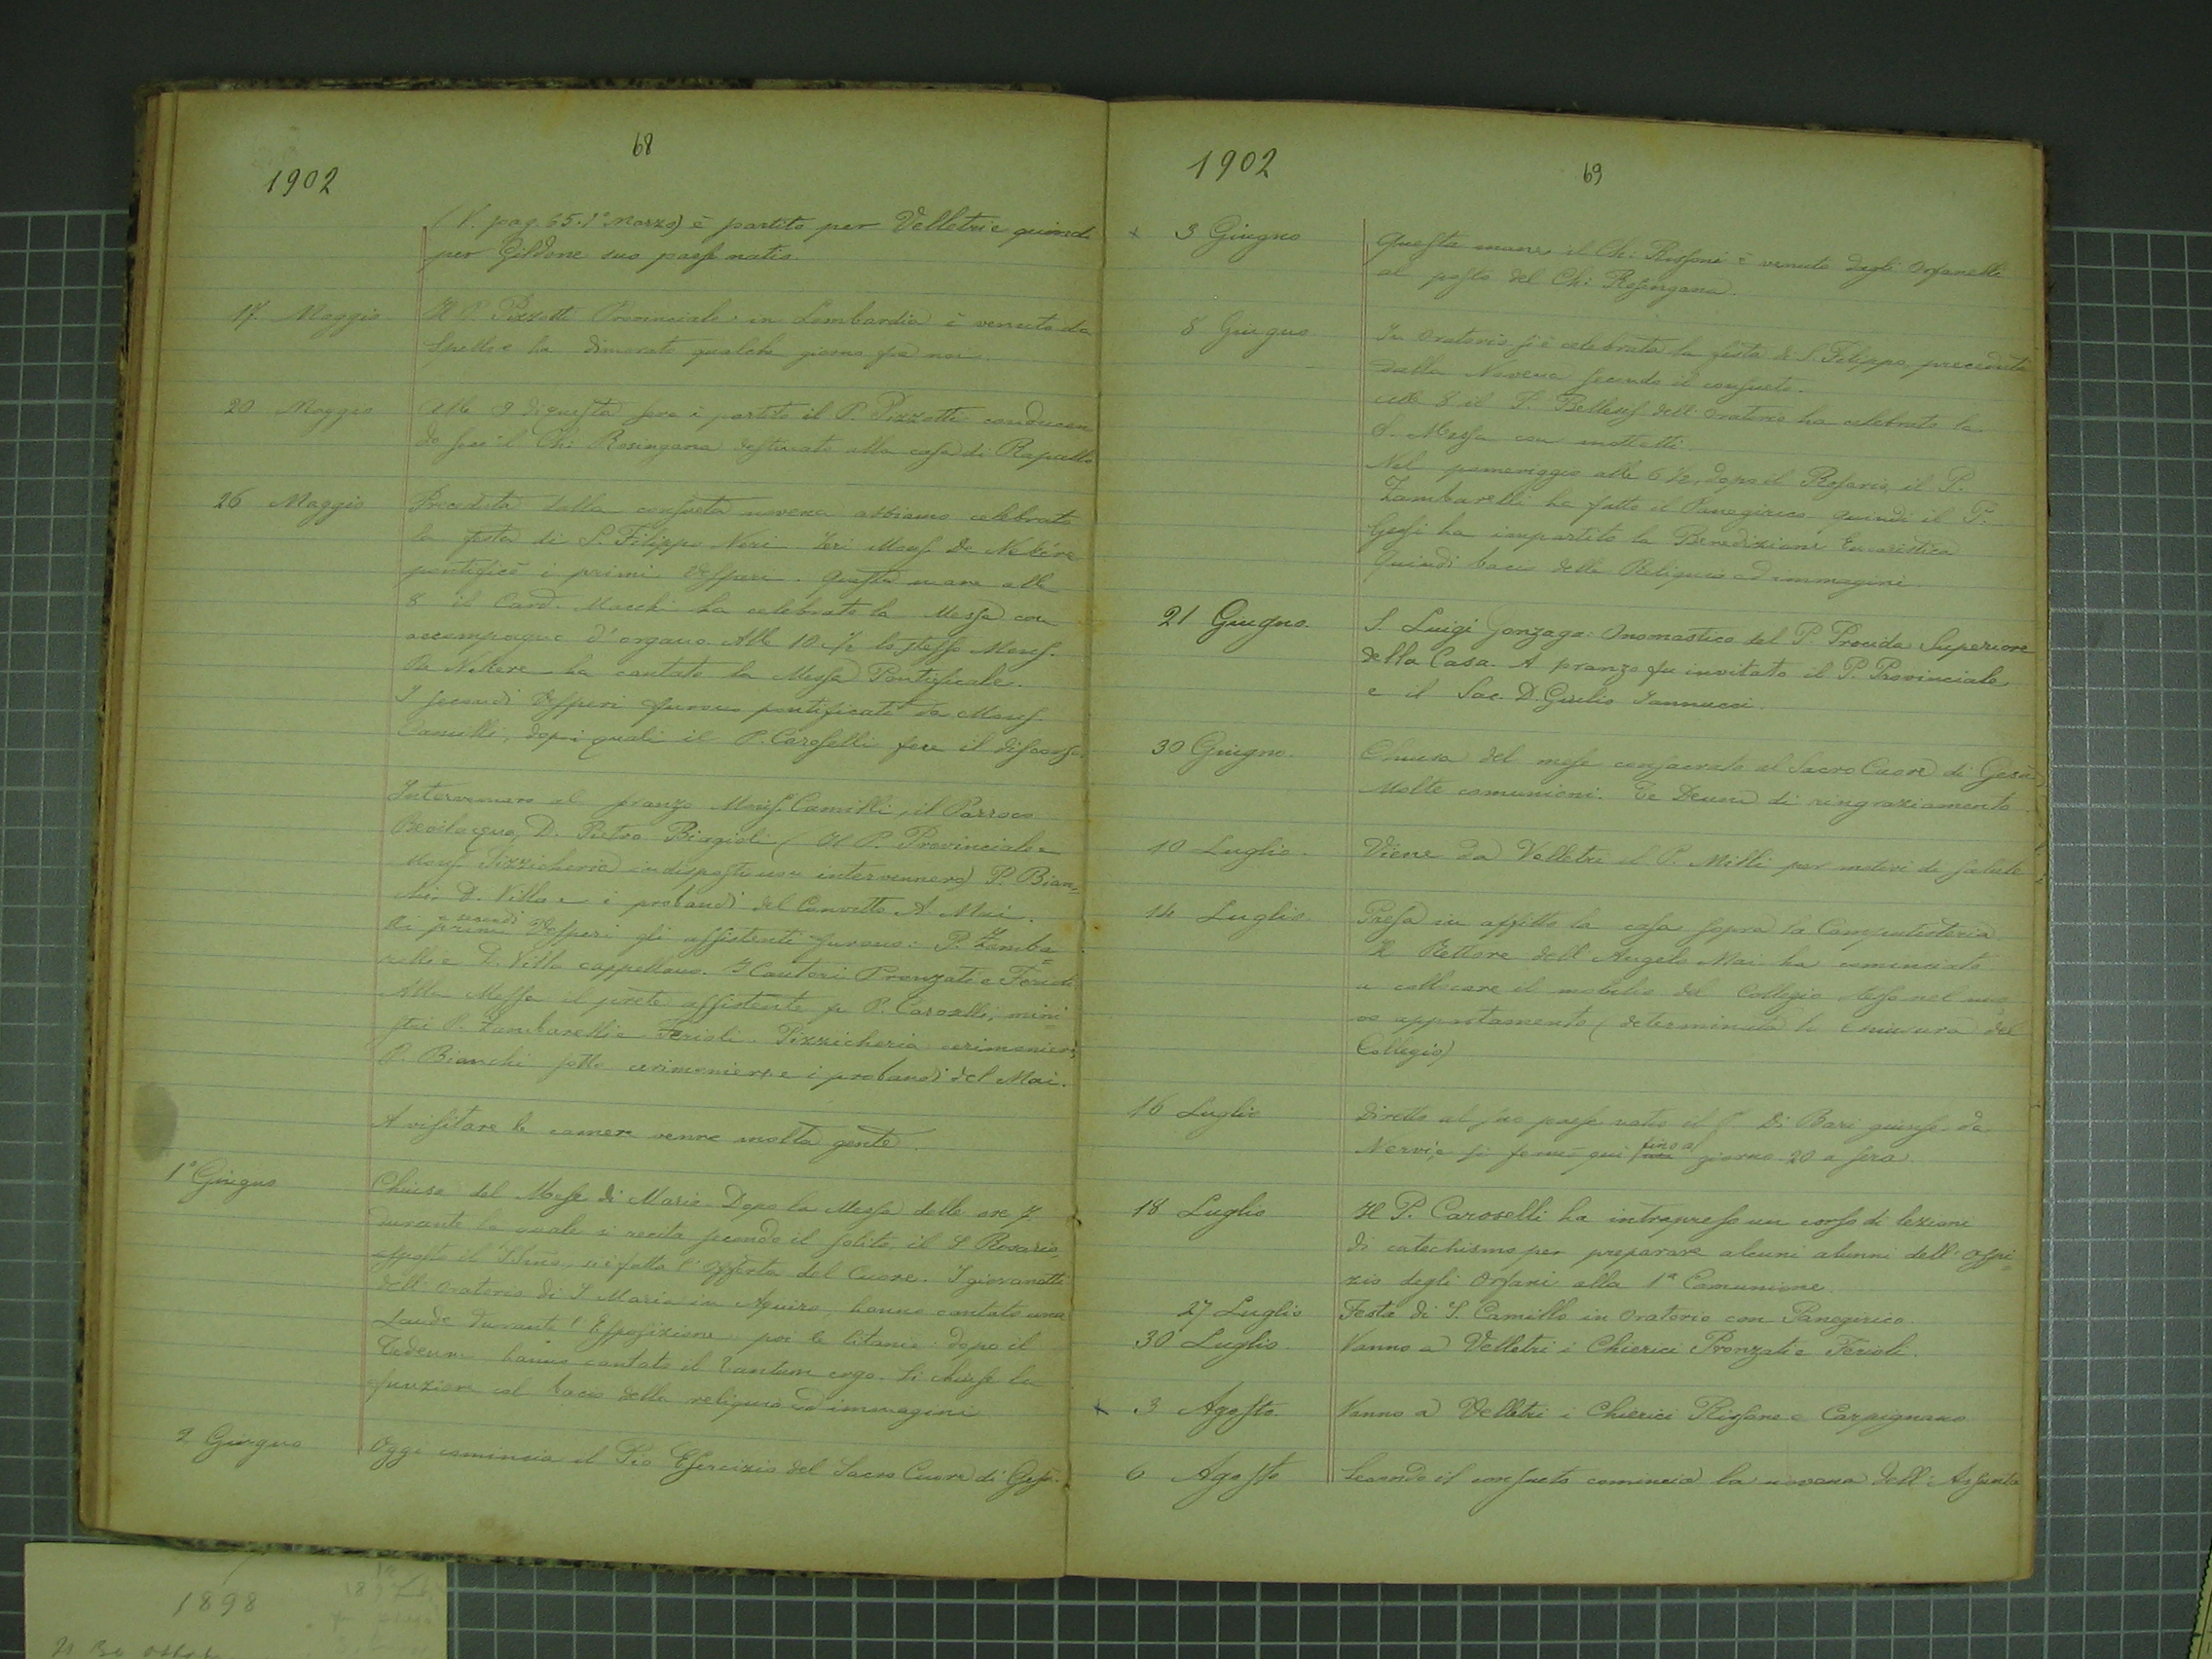 68
1902
(V. pag. 65. 1° Marzo) è partito per Velletri e quindi
per Gildone suo paese natio.
17. Maggio Il P. Pizzotti Provinciale in Lombardia è venuto da
Spello e ha dimorato qualche giorno fra noi.
20 Maggio Alle 9 di questa sera è partito il P. Pizzotti conducen
do seco il Ch: Rosingana destinato alla casa di Rapallo
26 Maggio Preceduta dalla consueta novena abbiamo celebrato
la festa di S. Filippo Neri. Ieri Mons. De Nekére
pontificò i primi Vesperi. Questa mane alle
8 il Card. Macchi ha celebrato la Messa con
accompagno d'organo. Alle 10 1/2 lo stesso Mons.
De Nekere ha cantato la Messa Pontificale.
I secondi Vesperi furono pontificati da Mons.
Camilli, dopo i quali il P. Caroselli fece il discorso.
Intervennero al pranzo Mons. Camilli, il Parroco
Bevilacqua, D. Pietro Biagioli (Il P. Provinciale e
Mons. Pizzicheria indisposti non intervennero) P. Bian=
chi, D. Villa e i probandi del Convitto A. Mai.
Ai primi e secondi Vesperi gli assistenti furono: P. Zamba=
relli e D. Villa cappellano. I Cantori Pronzati e Ferioli
Alla Messa il prete assistente fu P. Caroselli, mini=
stri P. Zambarelli e Ferioli. Pizzicheria cerimoniere,
P. Bianchi sotto cerimoniere, e i probandi del Mai.
A visitare le camere venne molta gente.
1° Giugno Chiusa del Mese di Maria. Dopo la Messa delle ore 7
durante la quale si recita secondo il solito, il S. Rosario,
esposto il SSmo, si è fatta l'offerta del Cuore. I giovanetti
dell'Oratorio di S. Maria in Aquiro, hanno cantato una
Laude durante l'Esposizione: poi le litanie: dopo il
Tedeum hanno cantato il Tantum ergo. Si chiuse la
funzione col bacio della reliquia ed immagini
2 Giugno Oggi comincia il Pio Esercizio del Sacro Cuore di Gesù.
1902
69
x 3 Giugno Questa mane il Ch: Rissoni è venuto dagli Orfanelli
al posto del Ch: Rosingana.
8 Giugno In Oratorio si è celebrata la festa di S. Filippo, preceduta
dalla Novena secondo il consueto.
alle 8 il P. dell'Oratorio ha celebrato la
S. Messa con mottetti.
Nel pomeriggio alle 6 1/2, dopo il Rosario, il P.
Zambarelli ha fatto il Panegirico quindi il P.
Gessi ha impartito la Benedizione Eucaristica
Quindi bacio delle Reliquie ed immagini.
21 Giugno. S. Luigi Gonzaga: Onomastico del P. Procida Superiore
della Casa. A pranzo fu invitato il P. Provinciale
e il Sac. D. Giulio Iannucci.
30 Giugno. Chiusa del mese consacrato al Sacro Cuore di Gesù
Molte comunioni. Te Deum di ringraziamento.
10 Luglio. Viene da Velletri il P. Milli per motivi di salute
14 Luglio Presa in affitto la casa sopra la Computisteria
Il Rettore dell'Angelo Mai ha cominciato
a collocare il mobilio del Collegio stesso nel nuo
vo appartamento (determinata la chiusura del
Collegio)
16 Luglio Diretto al suo paese natio il P. Di Bari giunse da
Nervi, e si fermò qui fino al giorno 20 a sera.
18 Luglio Il P. Caroselli ha intrapreso un corso di lezioni
di catechismo per preparare alcuni alunni dell'Ospi=
zio degli Orfani alla 1ª Comunione.
27 Luglio Festa di S. Camillo in Oratorio con Panegirico.
30 Luglio. Vanno a Velletri i Chierici Pronzati e Ferioli.
x 3 Agosto. Vanno a Velletri i Chierici Rissone e Carpignano
6 Agosto Secondo il consueto comincia la novena dell'Assunta
1898